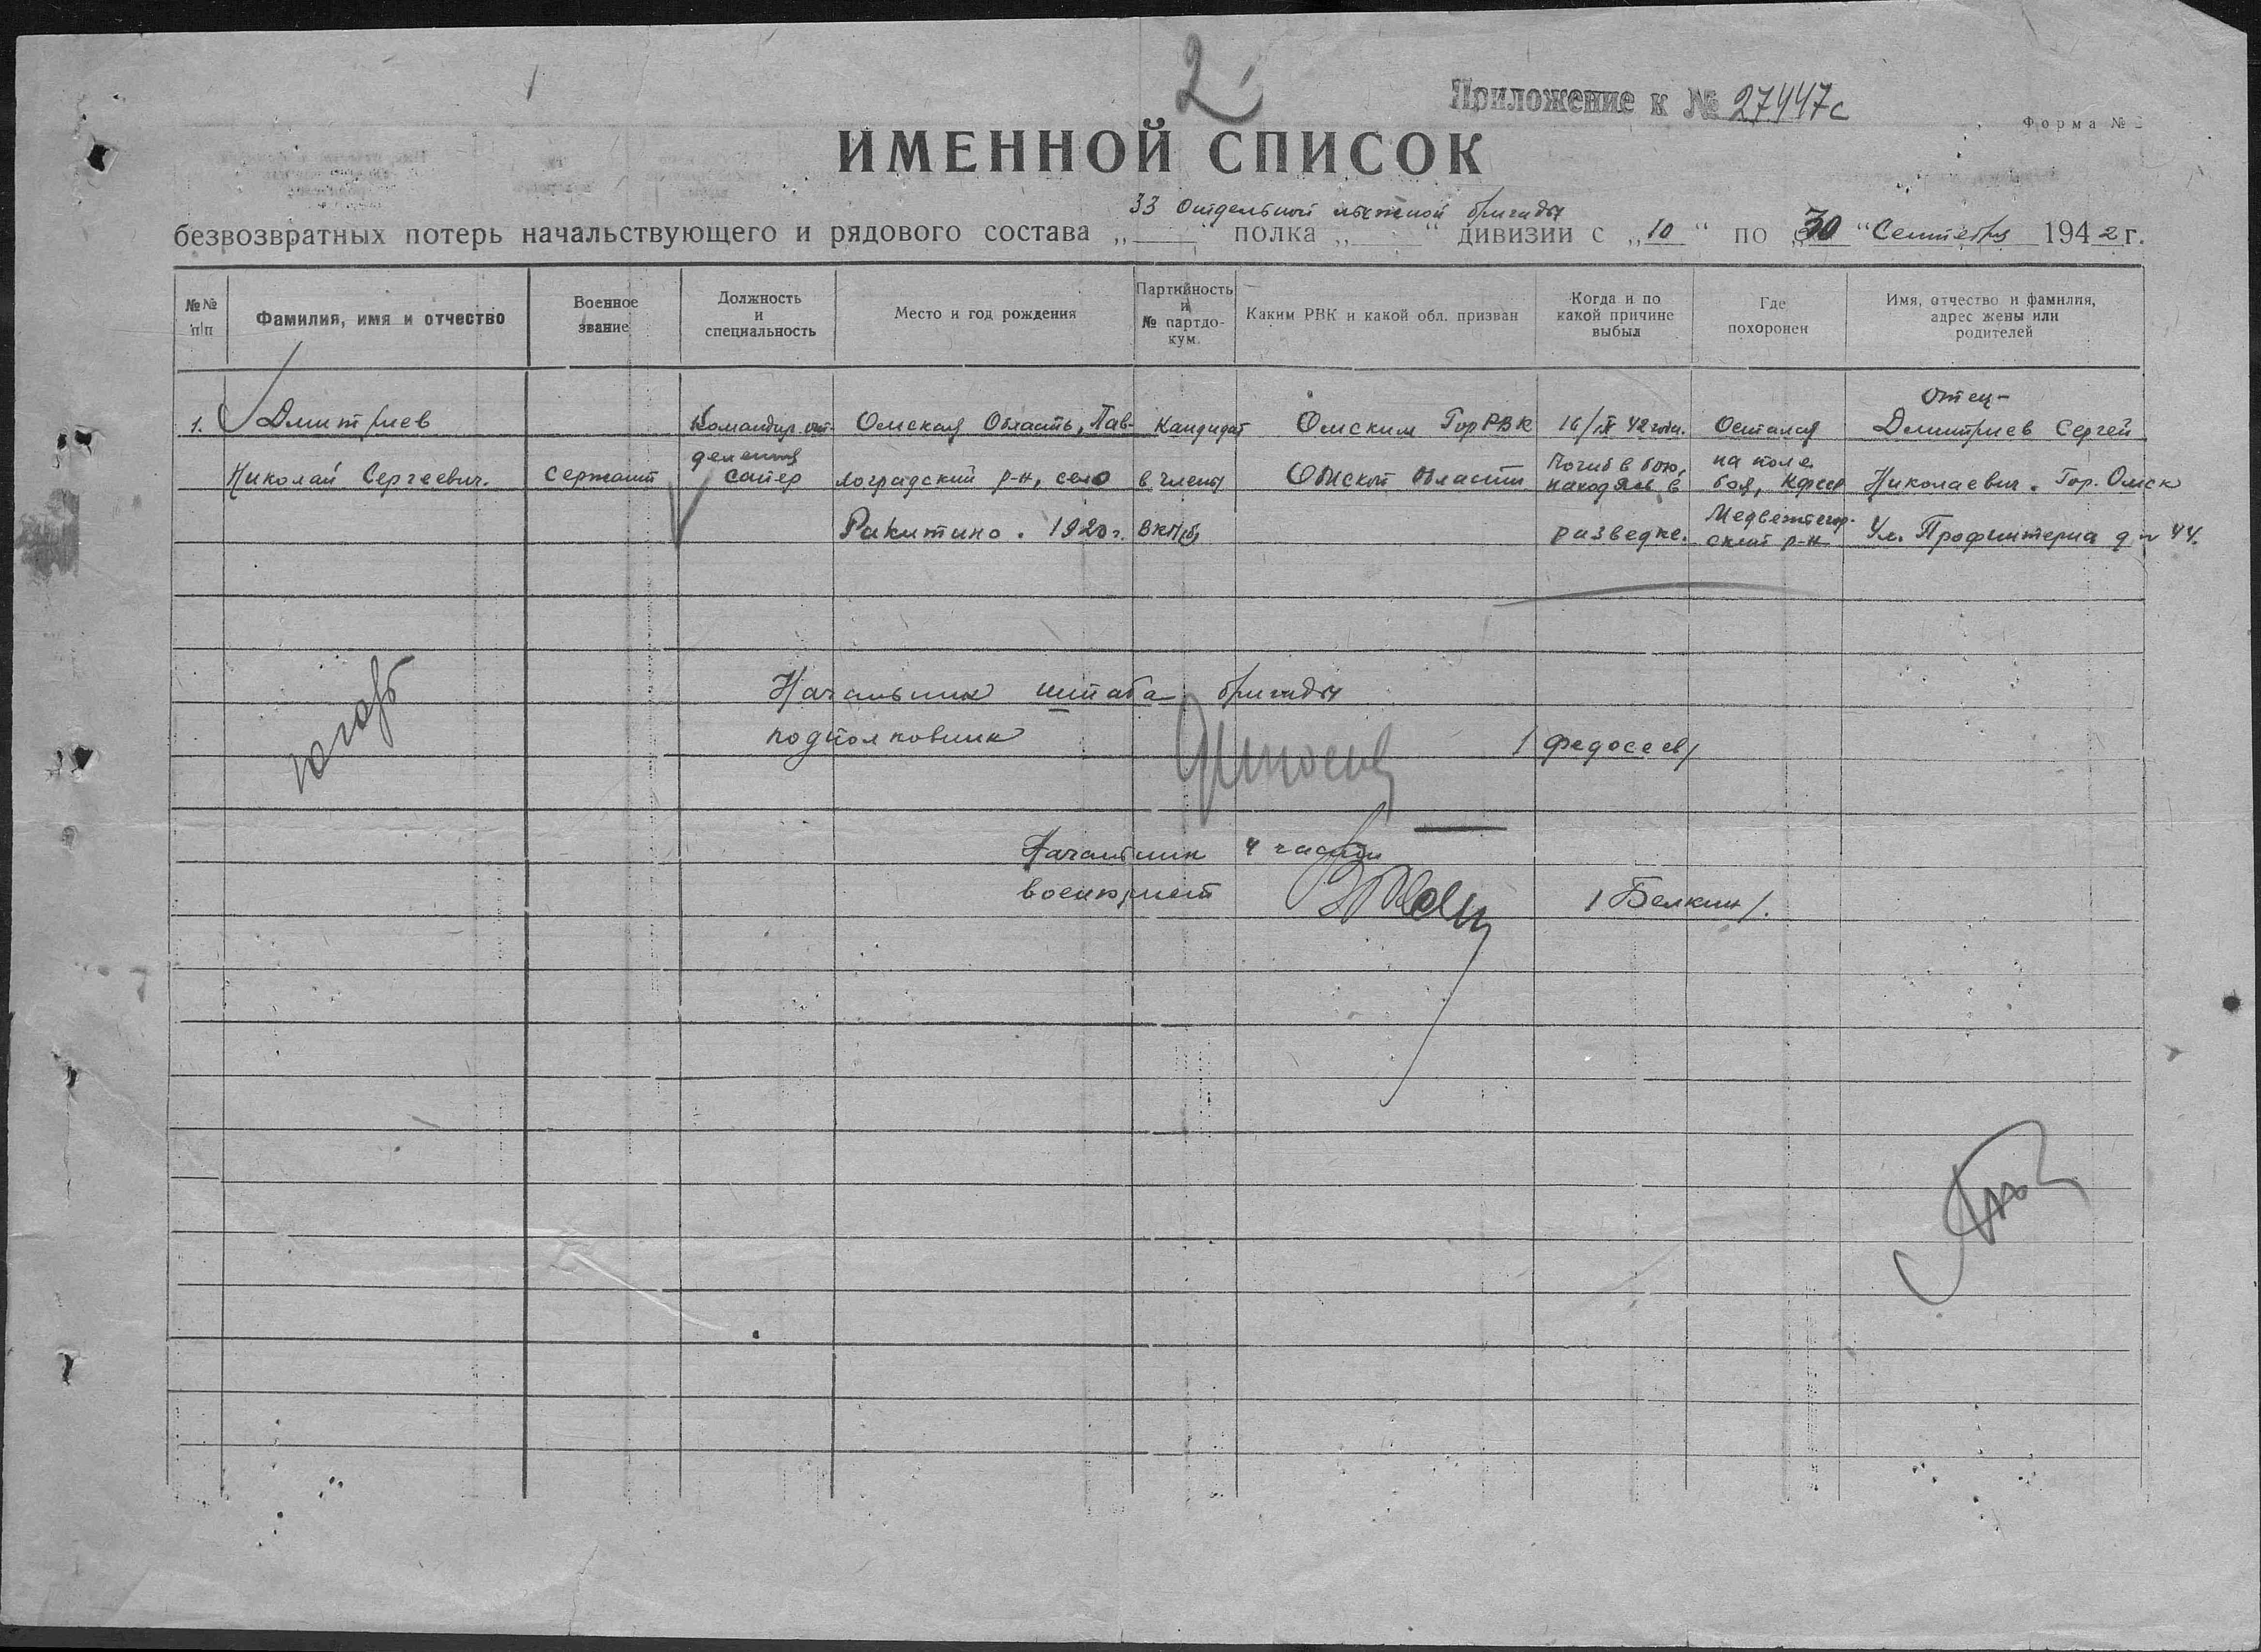 2
Приложение к № 27447с
Форма №
ИМЕННОЙ СПИСОК
33 Отдельной лыжной бригады
безвозвратных потерь начальствующего и рядового состава „ “ полка „ “ дивизии с „10“ по „30“ Сентября 1942 г.
№№ п/п
Фамилия, имя и отчество
Военное звание
Должность и специальность
Место и год рождения
Партийность и № партдокум.
Каким РВК и какой обл. призван
Когда и по какой причине выбыл
Где похоронен
Имя, отчество и фамилия, адрес жены или родителей
1.
Дмитриев
Николай Сергеевич.
Сержант
Командир от-
деления
сапер
Омская Область, Пав-
лоградский р-н, село
Ракитино. 1920 г.
Кандидат
в члены
ВКП(б)
Омским ГорРВК
Омской области
16/IX 42 года.
Погиб в бою,
находясь в
разведке.
Остался
на поле
боя, КФССР
Медвежьегор-
ский р-н
Отец-
Дмитриев Сергей
Николаевич. Гор. Омск
Ул. Профинтерна д № 44.
Начальник штаба бригады
подполковник
/Федосеев/
Начальник 4 части
военюрист
/Белкин/.